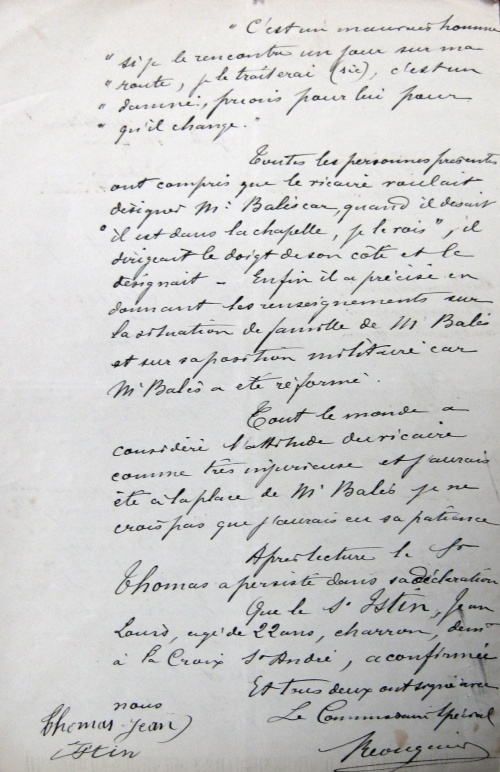 " C'est un mauvais homme
" si je le rencontre un jour sur ma
" route, je le traiterai (sic), c'est un
" damné, prions pour lui pour
" qu'il change. "
Toutes les personnes présentes
ont compris que le vicaire voulait
désigner Mr Balès car, quand il disait
" il est dans la chapelle, je le vois ", il
dirigeait le doigt de son côté et le
désignait – Enfin il a précisé en
donnant les renseignements sur
la situation de famille de M Balès
et sur sa position militaire car
Mr Balès a été réformé.
Tout le monde a
considéré l'attitude du vicaire
comme très injurieuse et j'aurais
été à la place de Mr Balès je ne
crois pas que j'aurais eu sa patience
Après lecture le Sr
Thomas a persisté dans sa déclaration
Que le Sr Istin, Jean
Louis, âgé de 22 ans, charron, demt
à la Croix St André, a confirmée
Et tous deux ont signé avec
nous
Le Commissaire Spécial
Thomas Jean
Istin